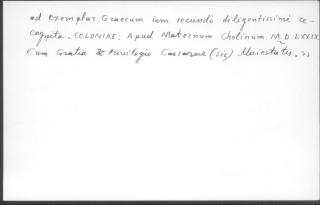 ad exemplar Graecum iam secundò diligentissimè re-
cognita. COLONIAE, Apud Maternum Cholinum. M.D.LXXIX.
Cum Gratia & Privilegio Caesareae (sic) Maiestatis.